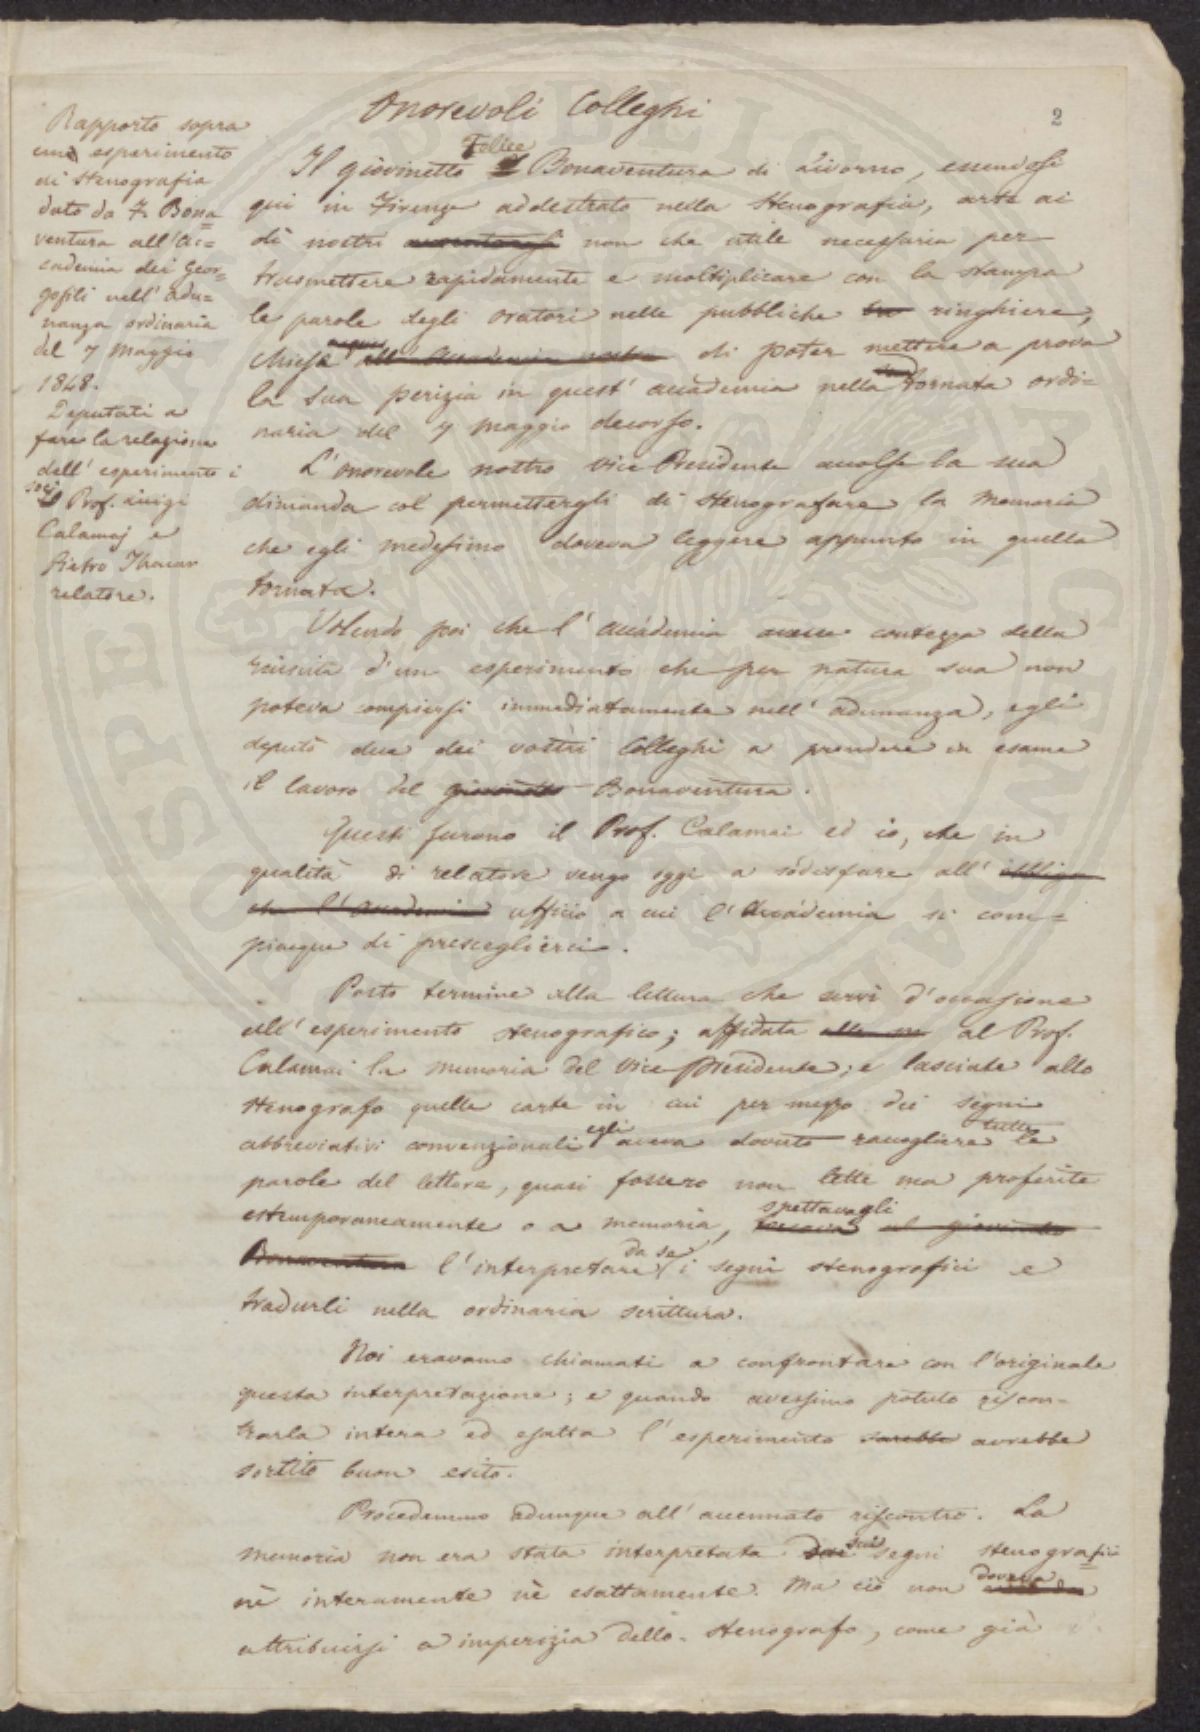 Onorevoli Colleghi
2
Rapporto sopra
uno esperimento
di Stenografia
dato da F. Bona=
ventura all'Ac=
cademia dei Geor=
gofili nell'adu=
nanza ordinaria
del 7 Maggio
1848.
Deputati a
fare la relazione
dell'esperimento i
socj Prof. Luigi
Calamaj e
Pietro Thouar
relatore.
Felice
Il giovinetto Bonaventura di Livorno, essendosi
qui in Firenze addestrato nella Stenografia, arte ai
dì nostri non che utile necessaria per
trasmettere rapidamente e moltiplicare con la stampa
le parole degli oratori nelle pubbliche ringhiere,
chiese all'Accademia nostra di poter mettere a prova
la sua perizia in quest'accademia nella tornata ordi=
naria del 7 Maggio decorso.
L'onorevole nostro Vice Presidente accolse la sua
dimanda col permettergli di Stenografare la Memoria
che egli medesimo doveva leggere appunto in quella
tornata.
Volendo poi che l'Accademia avesse contezza della
riuscita d'un esperimento che per natura sua non
poteva compiersi immediatamente nell'adunanza, egli
deputò due dei vostri Colleghi a prendere in esame
il lavoro del giovinetto Bonaventura.
Questi furono il Prof. Calamai ed io, che in
qualità di relatore vengo oggi a sodisfare all'
l'Accademia ufficio a cui l'Accademia si com=
piacque di prescegliérci.
Posto termine alla lettura che servì d'occasione
all'esperimento stenografico; affidata al Prof.
Calamai la memoria del Vice Presidente; e lasciate allo
stenografo quelle carte in cui per mezzo dei segni
abbreviativi convenzionali egli aveva dovuto raccogliere tutte le
parole del lettore, quasi fossero non lette ma proferite
estemporaneamente o a memoria, spettavagli al giovinetto
Bonaventura l'interpretare da se i segni stenografici e
tradurli nella ordinaria scrittura.
Noi eravamo chiamati a confrontare con l'originale
questa interpretazione; e quando avessimo potuto riscon=
trarla intera ed esatta l'esperimento sarebbe avrebbe
sortito buon esito.
Procedemmo adunque all'accennato riscontro. La
memoria non era stata interpretata dai sui segni stenografici
nè interamente nè esattamente. Ma ciò non doveva
attribuirsi a imperizia dello stenografo, come già